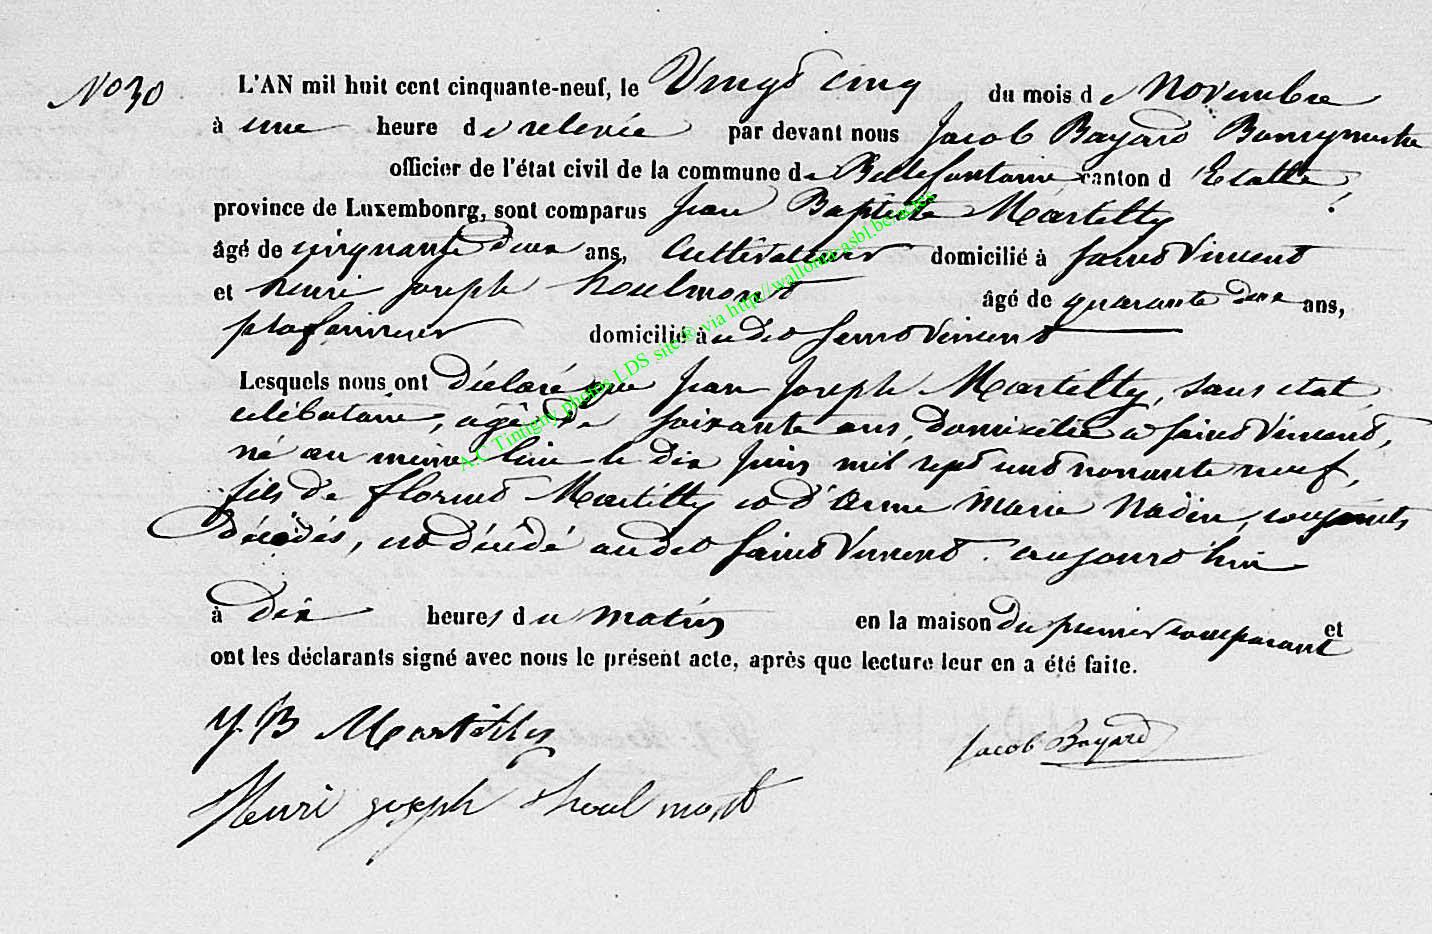 No 30
L'AN mil huit cent cinquante-neuf, le Vingt cinq du mois de Novembre
à une heure de relevée par devant nous Jacob Bayard Bourgmestre
officier de l'état civil de la commune de Bellefontaine canton d'Etalle,
province de Luxembourg, sont comparus Jean Baptiste Martilly
âgé de cinquante deux ans, Cultivateur domicilié à Saint Vincent
et henri joseph houlmont âgé de quarante deux ans,
plafonneur domicilié à udit Saint Vincent
Lesquels nous ont déclaré que Jean Joseph Martilly, sans état
célibataire, âgé de soixante ans, domicilié à Saint Vincent,
né au même lieu le dix juin mil sept cent nonante neuf,
fils de florent Martilly et d'Anne Marie Nadin, conjoints
Décédés, est décédé audit Saint Vincent aujourd'hui
à dix heures du matin en la maison du premier comparant et
ont les déclarants signé avec nous le présent acte, après que lecture leur en a été faite.
J. B Martilly
Jacob Bayard
Henri joseph houlmont
A.C Tintigny photos LDS site® via http://wallonica.asbl.be/actes